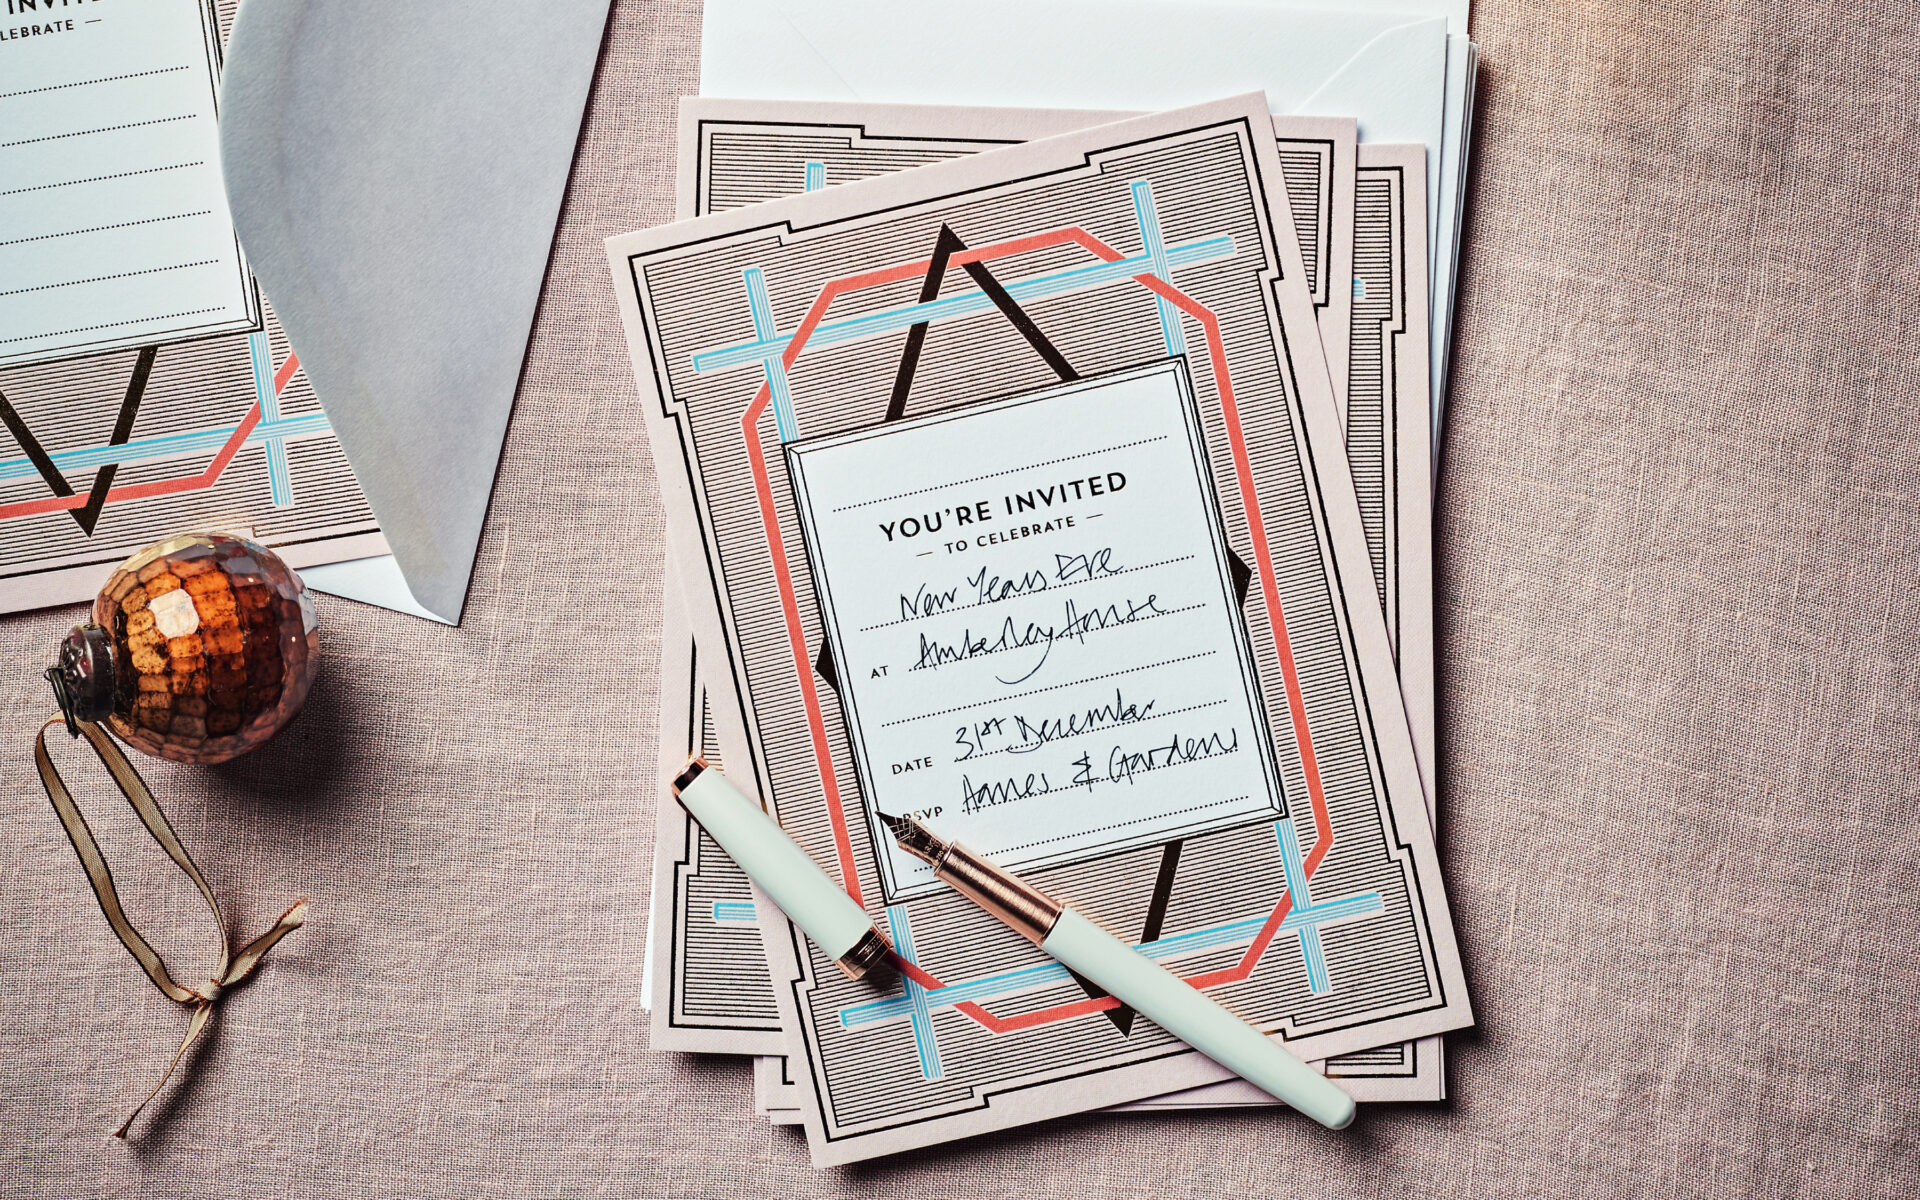 INVITED
LEBRATE —
YOU'RE INVITED
— TO CELEBRATE —
New Years Eve
AT Amberley House
DATE 31st December
RSVP Homes & Gardens